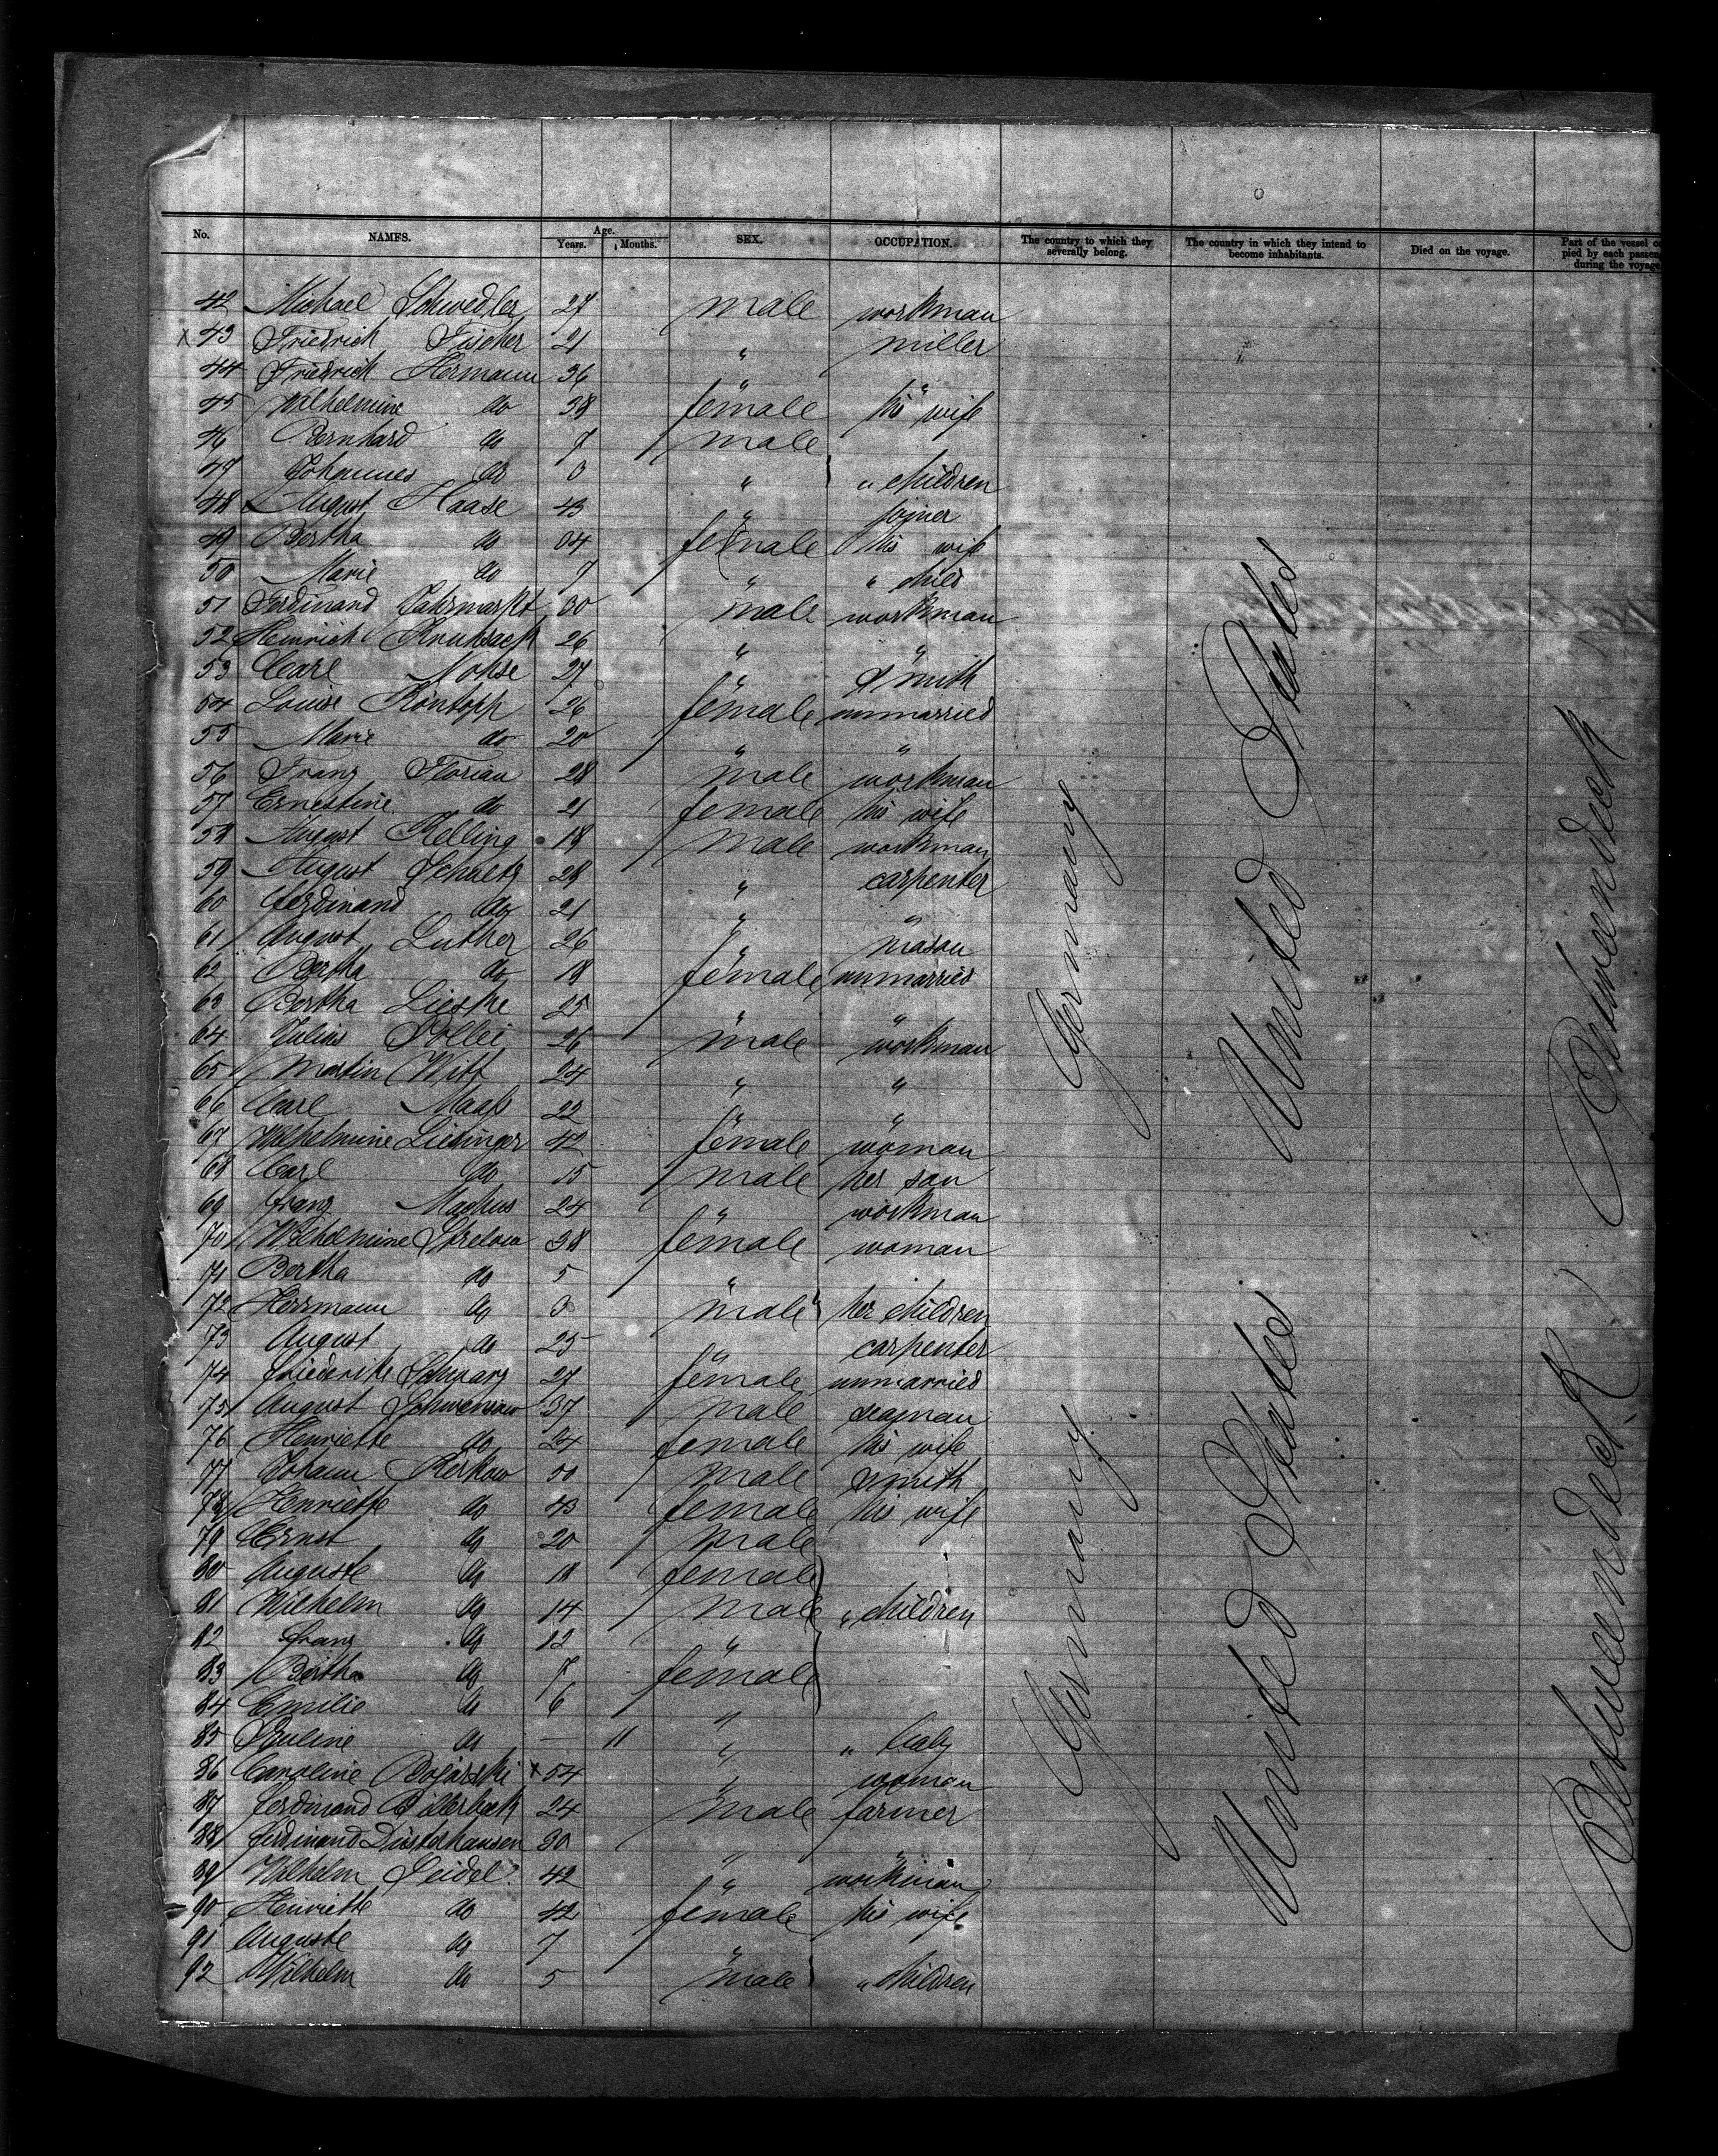 No. NAMES. Age. Years. Months. SEX. OCCUPATION. The country to which they severally belong. The country in which they intend to become inhabitants. Died on the voyage. Part of the vessel pied by each during the voyage
42 Michael Schwedler 27 male workman
x 43 Friedrich Fischer 21 " miller
44 Friedrich Hermann 36 " "
45 Wilhelmine do 38 female his wife
46 Bernhard do 7 male
47 Johannes do 3 " " children
48 August Haase 43 " joiner
49 Bertha do 34 female his wife
50 Marie do 7 " " child
51 Ferdinand Jahrmarkt 30 male workman
52 Heinrich 26 " "
53 Carl Nohse 27 " smith
54 Louise Röntopp 26 female unmarried
55 Marie do 20 " "
56 Franz Florian 28 male workman
57 Ernestine do 21 female his wife
58 August Kelling 18 male workman
59 August Schultz 28 " carpenter
60 Ferdinand do 21 " "
61 August Luther 26 " mason
62 Bertha do 18 female unmarried
63 Bertha Lieske 25 " "
64 Julius Pollei 26 male workman
65 Martin Witt 24 " "
66 Carl Maaß 22 " "
67 Wilhelmine Liesinger 42 female woman
68 Carl do 15 male her son
69 Franz Machus 24 " workman
70 Wilhelmine Strelow 38 female woman
71 Bertha do 5 "
72 Herrmann do 3 male her children
73 August do 25 " carpenter
74 Friederike Schwarz 27 female unmarried
75 August Schwensow 37 male seaman
76 Henriette do 24 female his wife
77 Johann Kerkow 50 male smith
78 Henriette do 43 female his wife
79 Ernst do 20 male
80 Auguste do 18 female
81 Wilhelm do 14 male " children
82 Franz do 12 "
83 Bertha do 7 female
84 Emilie do 6 "
85 Pauline do — 11 " " baby
86 Caroline Bojarski x 54 " woman
87 Ferdinand Billerbeck 24 male farmer
88 Ferdinand Düsterhausen 30 " "
89 Wilhelm Seidel 42 " workman
90 Henriette do 42 female his wife
91 Auguste do 7 "
92 Wilhelm do 5 male " children
Germany
Germany
United States
United States
Betweendeck
Betweendeck